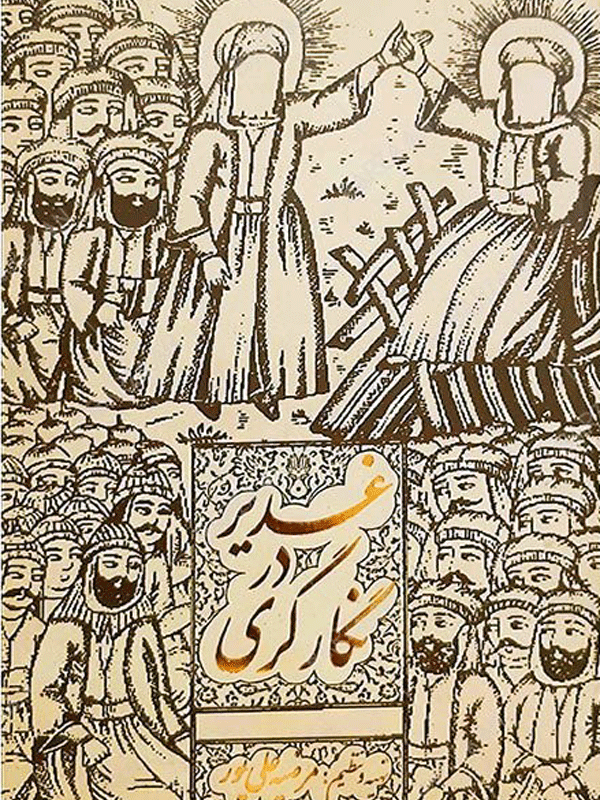 غدیر
در
نگارگری
تهیه و تنظیم: مرضیه علی پور